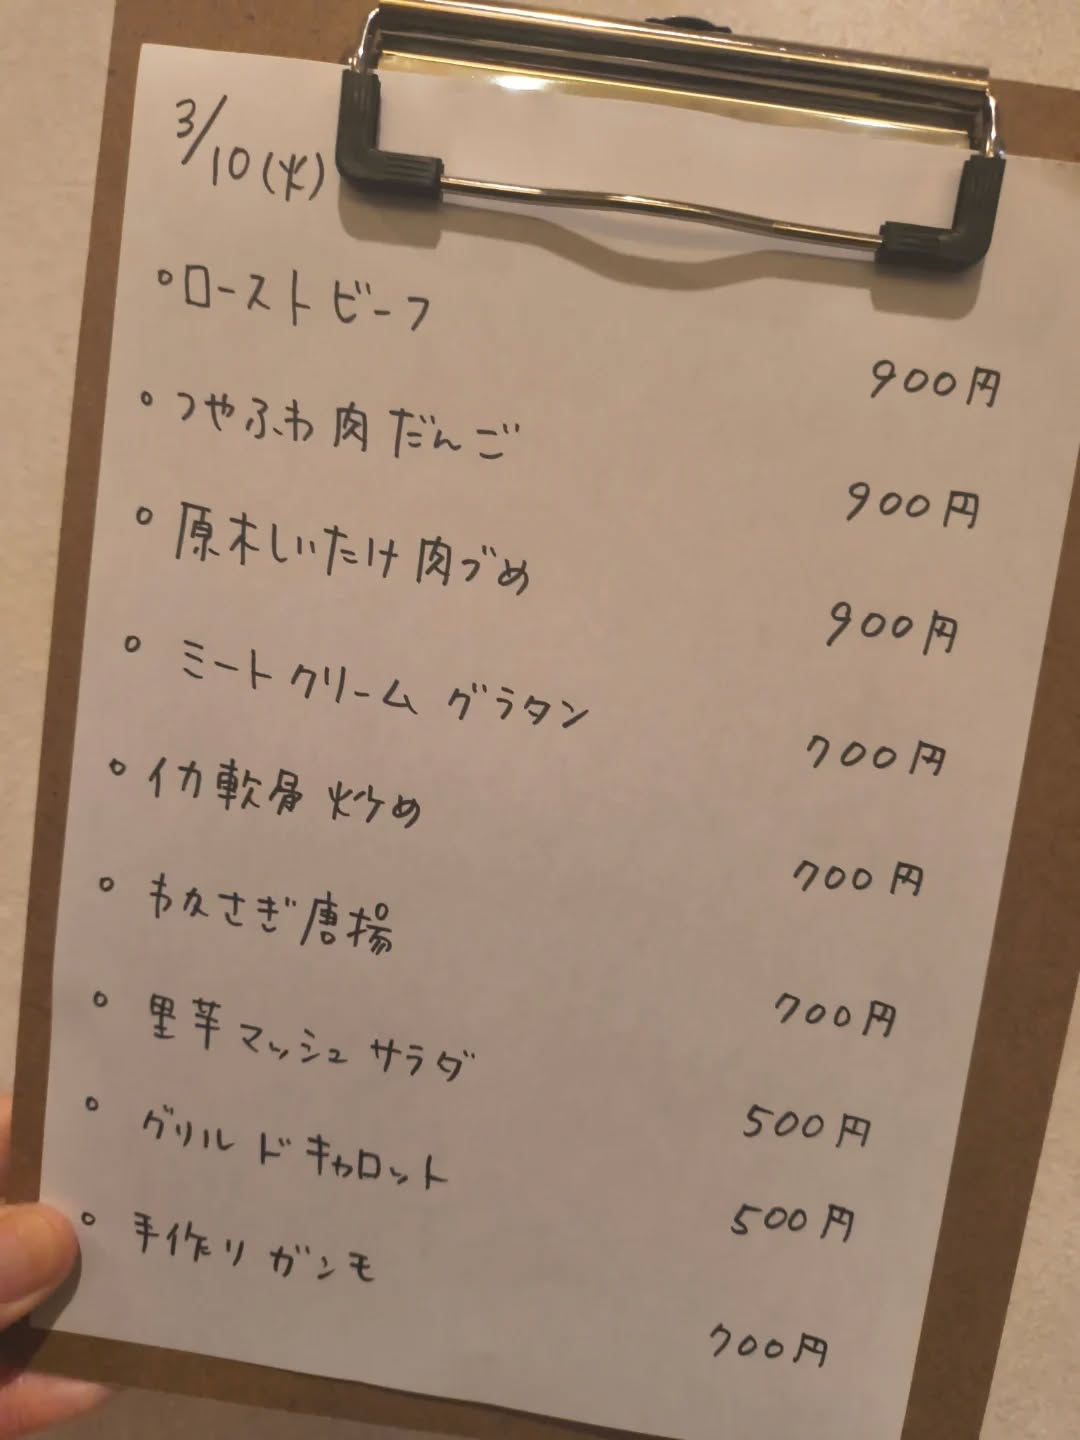 3/10(火)
・ローストビーフ 900円
・つやふわ肉だんご 900円
・原木しいたけ肉づめ 900円
・ミートクリームグラタン 700円
・イカ軟骨炒め 700円
・わかさぎ唐揚 700円
・里芋マッシュサラダ 500円
・グリルドキャロット 500円
・手作りガンモ 700円